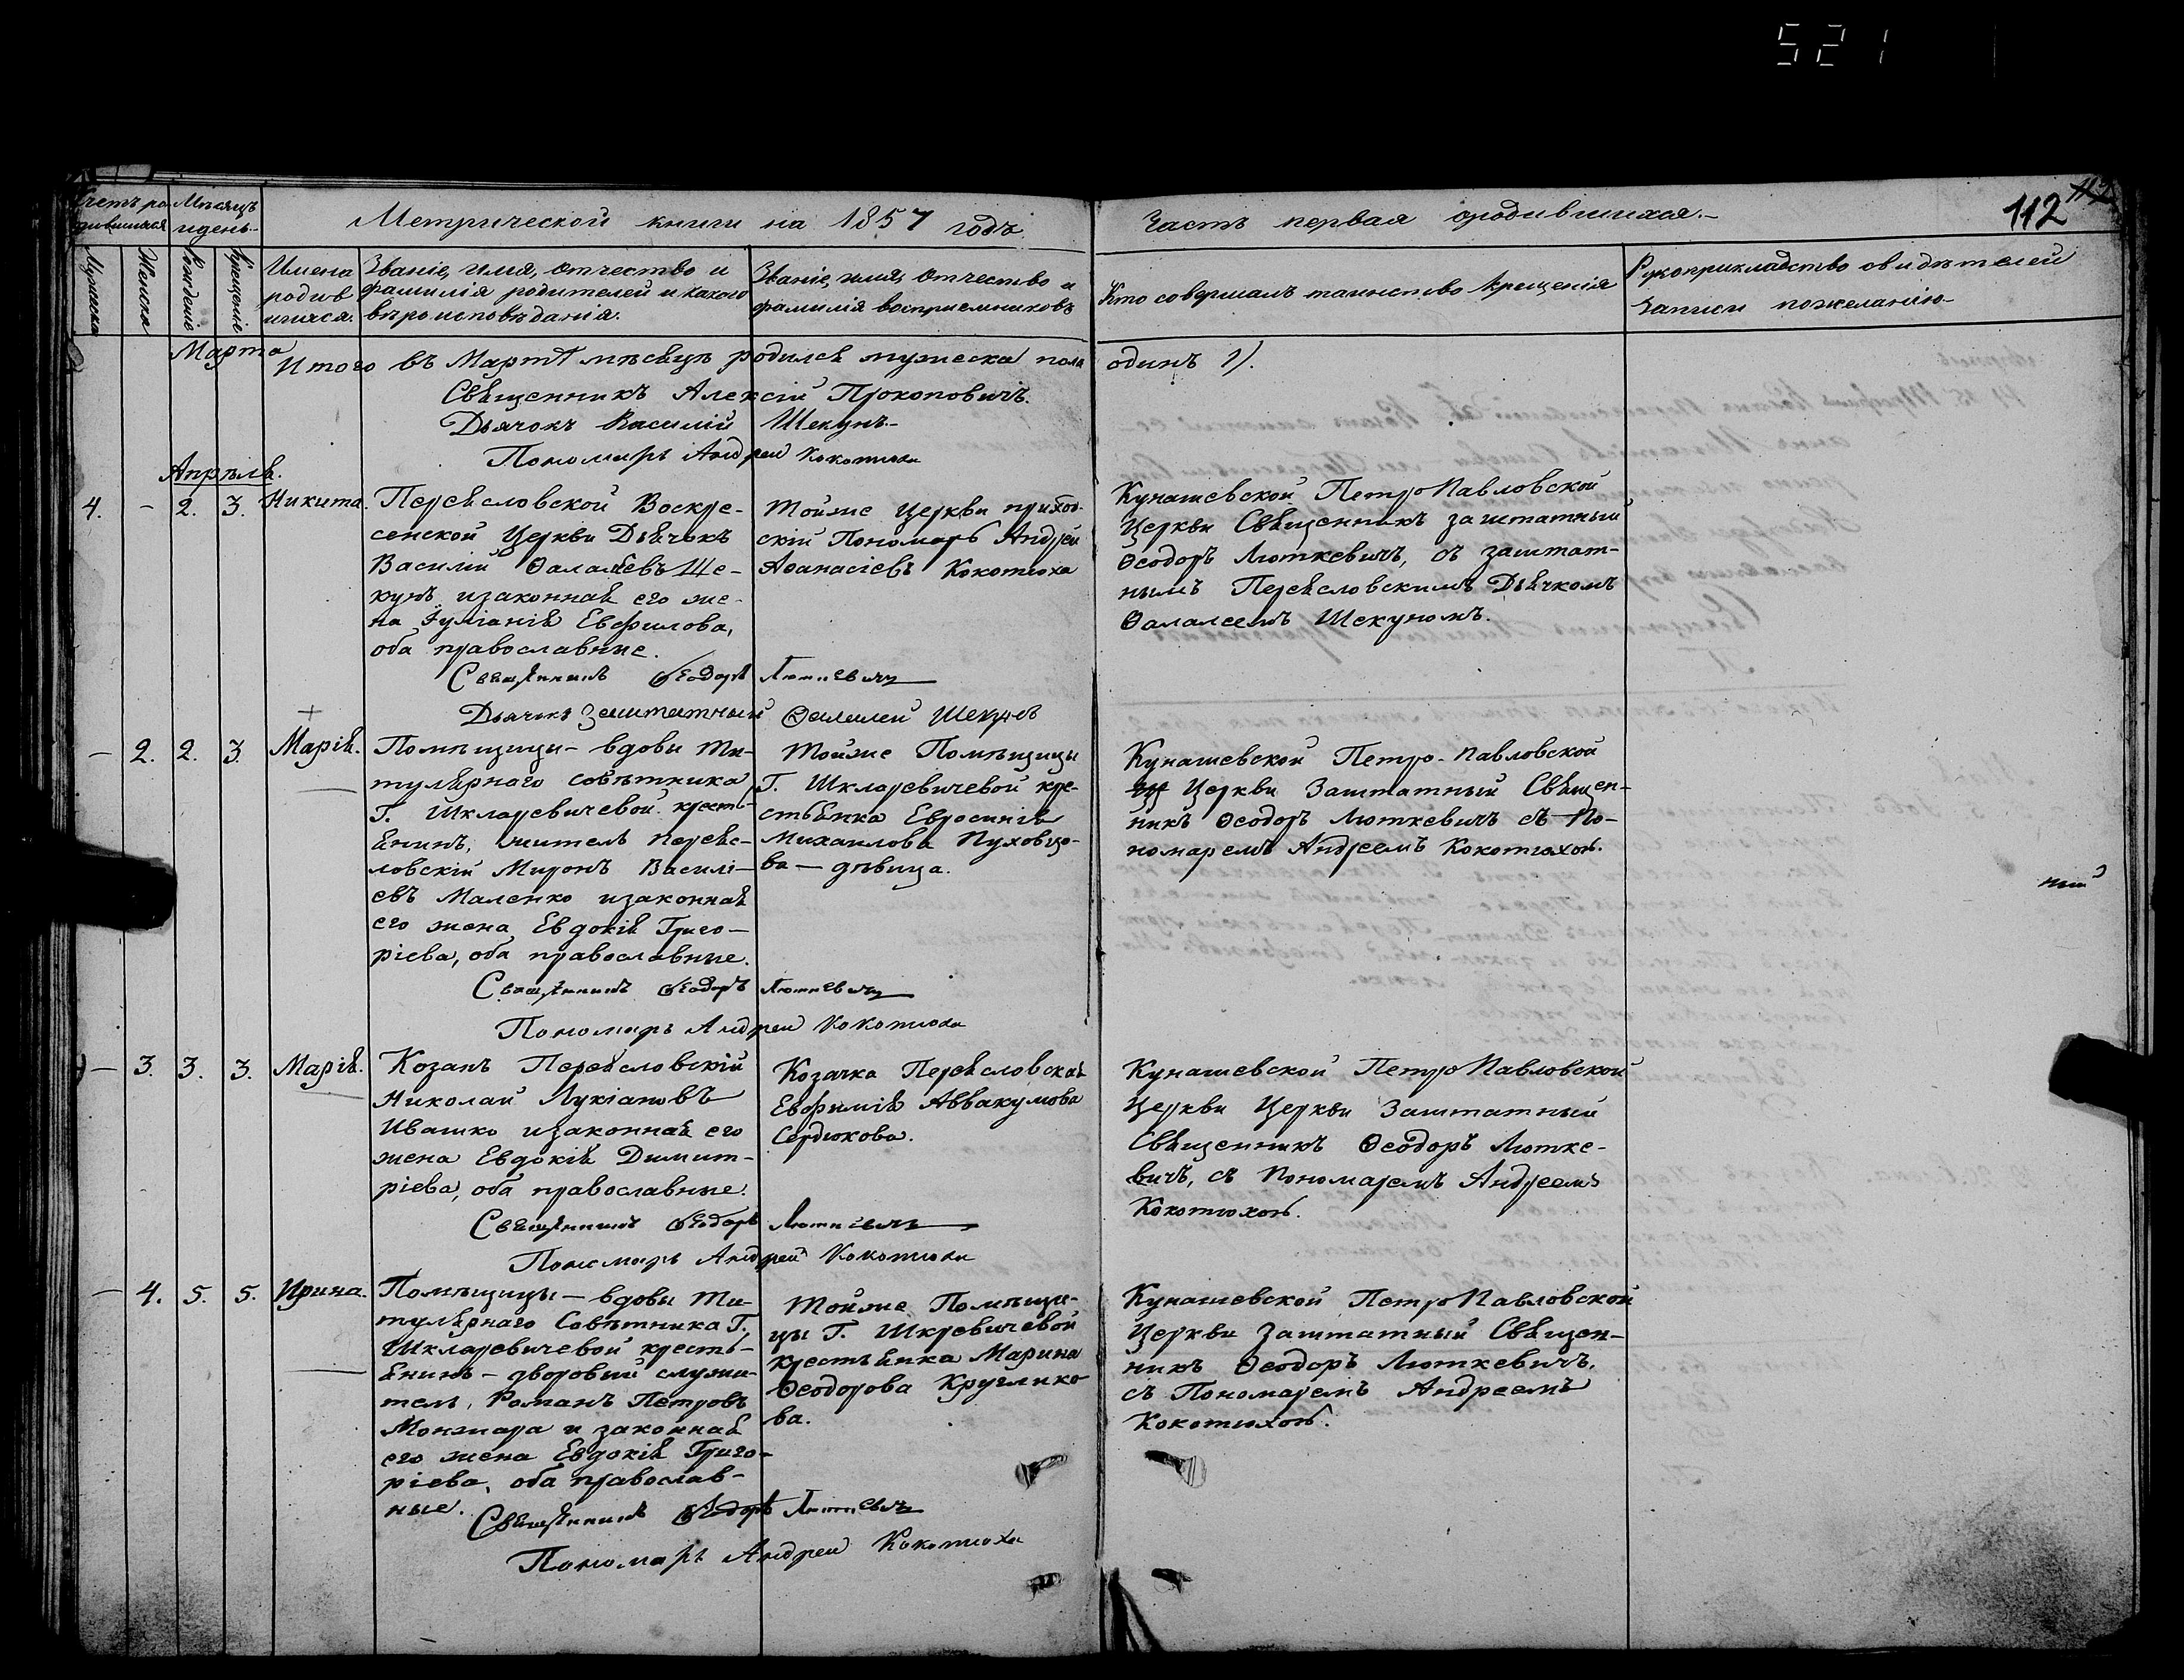 521
112
Счетъ ро Мѣсяцъ
дившихся идень.
Метрической книги на 1857 годъ
Часть первая ородившихся.
Мужеска
Женска
Рожденіе
Крещеніе
Имена
родив
шихся.
Званіе, имя, отчество и
фамилія родителей и какого
вѣроисповѣданія.
Званіе, имя, отчество и
фамилія воспріемниковъ
Кто совершалъ таинство Крещенія
Рукоприкладство свидѣтелей
записи пожеланію
Марта
Итого въ Мартѣ мѣсяцѣ родился мужеска пола одинъ 1).
Священникъ Алексій Прокоповичъ.
Дьячокъ Василій Шекунъ.
Пономаръ Андрей Кокотюха
Апрѣля.
4. - 2. 3. Никита.
Переясловской Воскре-
сенской Церкви Дьячокъ
Василій Ѳалалѣевъ Ше-
кунъ изаконная его же-
на Іуліанія Евфилова,
оба православные.
Тойже Церкви приход-
скій Пономарь Андрей
Аѳанасіевъ Кокотюха
Кунашевской ПетроПавловской
Церкви Священникъ заштатный
Ѳеодоръ Люткевичъ, съ заштат-
нымъ Переясловскимъ Дьячкомъ
Ѳалалеемъ Шекуномъ.
Священникъ Ѳеодоръ Люткевичъ
Дьячокъ Заштатный Ѳалалей Шекунъ
— 2. 2. 3. Марія.
Помѣщицы - вдовы Ти-
тулярнаго совѣтника
Г. Шкларевичевой кресть-
янинъ, житель Переяс-
ловскій Миронъ Василі-
евъ Маленко изаконная
его жена Евдокія Григо-
ріева, оба православные.
Тойже Помѣщицы
Г. Шкларевичевой кре-
стьянка Евросинія
Михаилова Пуховцо-
ва — дѣвица.
Кунашевской Петро-Павловской
Церкви Заштатный Священ-
никъ Ѳеодоръ Люткевичъ съ По-
номаремъ Андреемъ Кокотюхою.
ный
Священникъ Ѳеодоръ Люткевичъ
Пономаръ Андрей Кокотюха
— 3. 3. 3. Марія.
Козакъ Переясловскій
Николай Лукіановъ
Ивашко изаконная его
жена Евдокія Димит-
ріева, оба православные.
Козачка Переясловская
Евфимія Аввакумова
Сердюкова.
Кунашевской ПетроПавловской
Церкви Церкви Заштатный
Священникъ Ѳеодоръ Лютке-
вичъ, съ Пономаремъ Андреемъ
Кокотюхою.
Священникъ Ѳеодоръ Люткевичъ
Пономаръ Андрей Кокотюха
— 4. 5. 5. Ирина.
Помѣщицы — вдовы Ти-
тулярнаго Совѣтника Г.
Шкларевичевой кресть-
янинъ — дворовый служи-
тель, Романъ Петровъ
Монжара и законная
его жена Евдокія Григо-
ріева, оба православ-
ные.
Тойже Помѣщи-
цы Г. Шкревичевой
крестьянка Марина
Ѳеодорова Круглико-
ва.
Кунашевской ПетроПавловской
Церкви Заштатный Священ-
никъ Ѳеодоръ Люткевичъ,
съ Пономаремъ Андреемъ
Кокотюхою.
Священникъ Ѳеодоръ Люткевичъ
Пономаръ Андрей Кокотюха